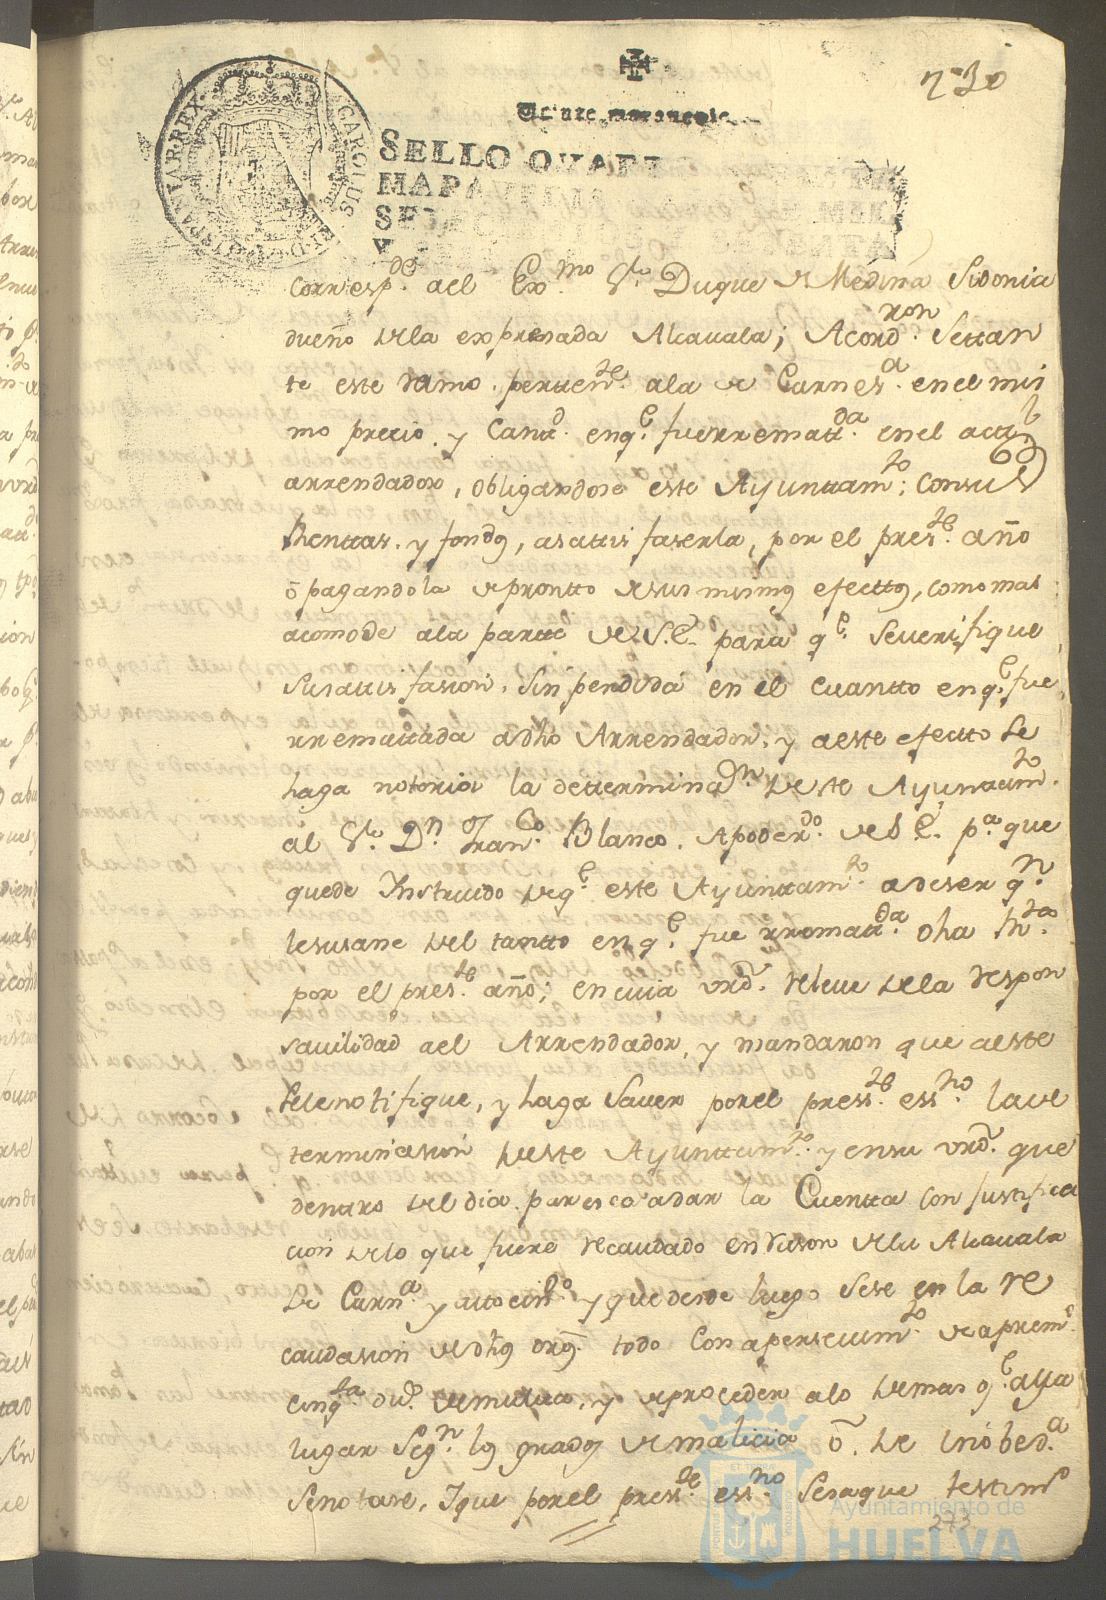 230
Veinte maravedis.
SELLO QVART
MARAVEDIS
CAROLUS
D.G.HISPANIAR.REX
correspte. del Exmo. Sr. Duque de Medina Sidonia
dueño dela expresada Alcavala; Acordron. Settan
te este ramo. perttente. ala de Carnesa. en el mis
mo precio. y Cantd. enqe. fue rremattda. en el acttl
arrendador, obligandose este Ayunttamto; consus
Renttas. y fondos, asattisfaserla, por el preste. año
ō pagandola de prontto desus mismos efecttos, como mas
acomode ala partte de S.E. para qe. Severifique
susattisfasion, sin perdida en el cuantto enqe. fue
rremattada adho Arrendador, y aeste efectto Se
haga notoria la dettermináon. deeste Ayunttamto.
al Sr. Dn. Franco. Blanco. Apoderdo. de S.E. pa. que
quede Instruido deqe. este Ayunttamto. adeser qn.
lesusane del tantto enqe. fue rremattda. dha Rta.
por el preste. año; en cuia vrd. releve dela respon
savilidad del Arrendador, y mandaron que aeste
Selenotifique, y haga Saver por el presste. essno. la de
terminasion deeste Ayunttamto. y ensu vrd. que
dentro del dia paresca adar la Cuentta con Justifica
cion delo que fuere recaudado en rason dela Alcavala
de Carna. y quedesde luego Sese en la re
caudasion de dhos todo con apersevimto. de apremo.
cinqta. dus. de multa, y deproceder alo demas qe. aya
lugar Segn. los grados de malicia ō. de inōbeda.
Senotase. Y que por el presste. essno. Sesaque testimo
273
Ayuntamiento de
HUELVA